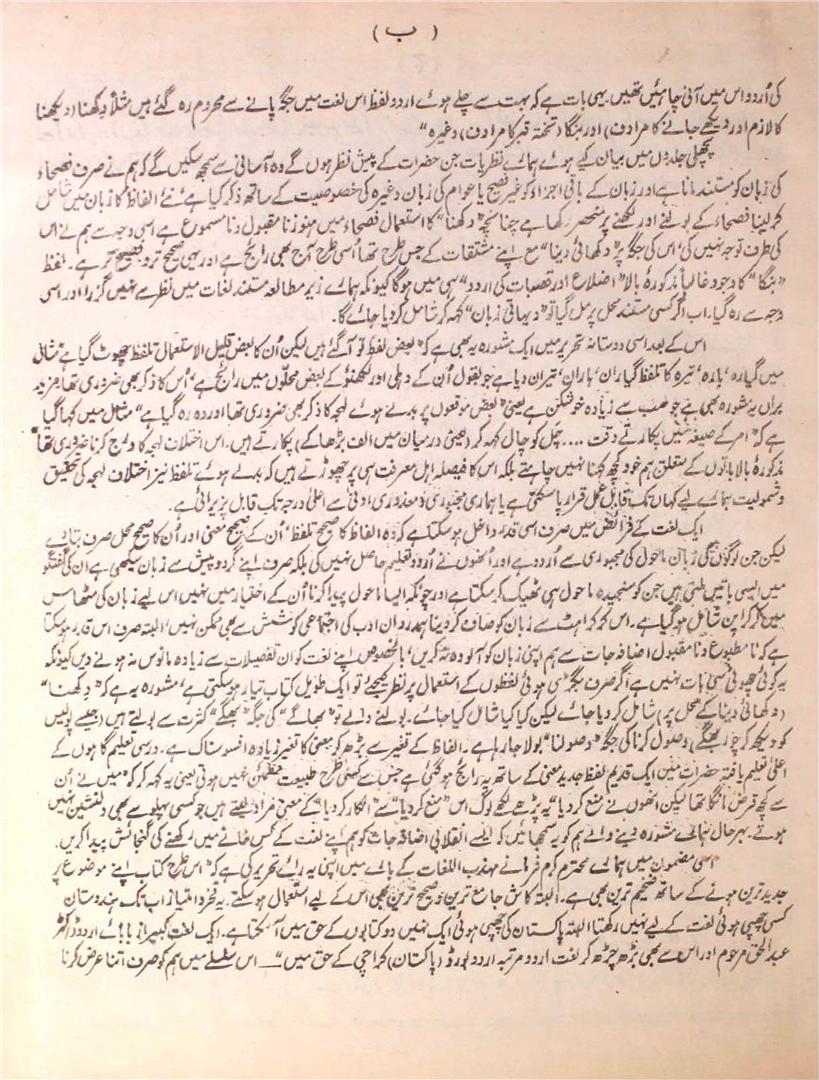 ( ب )
کی اُردو اس میں آنی چاہئیں تھیں۔ یہی بات ہے کہ بہت سے چلے ہوئے اردو لفظ اس لغت میں جگہ پانے سے محروم رہ گئے ہیں مثلاً دِکھنا (دیکھنا
کا لازم اور دیکھے جانے کا مرادف) اور ہنگا (تختۂ قبر کا مرادف) وغیرہ "
پچھلی جلدوں میں بیان کیے ہوئے ہمارے نظریات جن حضرات کے پیش نظر ہوں گے وہ آسانی سے سمجھ سکیں گے کہ ہم نے صرف فصحاء
کی زبان کو مستند مانا ہے اور زبان کے باقی اجزاء کو غیر فصیح یا عوام کی زبان وغیرہ کی خصوصیت کے ساتھ ذکر کیا ہے نئے الفاظ کا زبان میں شامل
کر لینا فصحاء کے بولنے اور لکھنے پر منحصر رکھا ہے چنانچہ "دکھنا" کا استعمال فصحاء میں ہنوز نا مقبول و نا مسموع ہے اسی وجہ سے ہم نے اس
کی طرف توجہ نہیں کی' اس کی جگہ پر "دکھائی دینا" مع اپنے مشتقات کے جس طرح تھا اُسی طرح آج بھی رائج ہے اور یہی صحیح تر و فصیح تر ہے۔ لفظ
"ہنگا" کا وجود غالباً مذکورۂ بالا "اضلاع اور قصبات کی اردو" ہی میں ہوگا کیونکہ ہمارے زیر مطالعہ مستند لغات میں نظر سے نہیں گزرا اور اسی
وجہ سے رہ گیا۔ اب اگر کسی مستند محل پر مل گیا تو "دیہاتی زبان" کہہ کر شامل کر دیا جائے گا۔
اس کے بعد اسی دوستانہ تحریر میں ایک مشورہ یہ بھی ہے کہ "بعض لفظ تو آ گئے ہیں لیکن اُن کا بعض قلیل الاستعمال تلفظ چھوٹ گیا ہے" مثال
میں گیارہ' بارہ' تیرہ کا تلفظ گیاراں' باراں' تیراں دیا ہے جو بقول اُن کے دہلی اور لکھنؤ کے بعض محلّوں میں رائج ہے' اُس کا ذکر بھی ضروری تھا۔ مزید
براں یہ مشورہ بھی ہے جو سب سے زیادہ خوشکن ہے یعنی "بعض موقعوں پر بدلے ہوئے لہجہ کا ذکر بھی ضروری تھا اور وہ رہ گیا ہے" مثال میں کہا گیا
ہے کہ "امر کے صیغہ میں پکارتے وقت .... چَل کو چال کہہ کر (یعنی درمیان میں الف بڑھا کے) پکارتے ہیں۔ اس اختلاف لہجہ کا درج کرنا ضروری تھا"
مذکورۂ بالا باتوں کے متعلق ہم خود کچھ کہنا نہیں چاہتے بلکہ اس کا فیصلہ اہل معرفت ہی پر چھوڑتے ہیں کہ بدلے ہوئے تلفظ نیز اختلاف لہجہ کی تحقیق
و شمولیت ہمارے لیے کہاں تک قابل عمل قرار پا سکتی ہے یا ہماری مجبوری و معذوری ادنیٰ سے اعلیٰ درجہ تک قابل پزیرائی ہے۔
ایک لغت کے فرائض میں صرف اسی قدر داخل ہو سکتا ہے کہ وہ الفاظ کا صحیح تلفظ' اُن کے صحیح معنی اور اُن کا صحیح محل صرف بتا دے
لیکن جن لوگوں کی زبان ماحول کی مجبوری سے اُردو ہے اور اُنھوں نے اُردو تعلیم حاصل نہیں کی بلکہ صرف اپنے گرد و پیش سے زبان سیکھی ہے ان کی گفتگو
میں ایسی باتیں ملتی ہیں جن کو سنجیدہ ماحول ہی ٹھیک کر سکتا ہے اور چونکہ ایسا ماحول پیدا کرنا اُن کے اختیار میں نہیں اس لیے زبان کی مٹھاس
میں کرکراپن شامل ہو گیا ہے۔ اس کرکراہٹ سے زبان کو صاف کر دینا ہمدردان ادب کی اجتماعی کوشش سے بھی ممکن نہیں' البتہ صرف اس قدر ہو سکتا
ہے کہ نا مطبوع و نا مقبول اضافہ جات سے ہم اپنی زبان کو آلودہ نہ کریں' بالخصوص اپنے لغت کو ان تفصیلات سے زیادہ مانوس نہ ہونے دیں کیونکہ
یہ کوئی چھوٹی سی بات نہیں ہے اگر صرف بگڑی ہوئی لفظوں کے استعمال پر نظر کیجئے تو ایک طویل کتاب تیار ہو سکتی ہے' مشورہ یہ ہے کہ "دکھنا"
(دکھائی دینا کے محل پر) شامل کر دیا جائے لیکن کیا کیا شامل کیا جائے۔ بولنے والے تو "بھاگے" کی جگہ "بھگے" کثرت سے بولتے ہیں (جیسے پولیس
کو دیکھ کر چور بھگے) وصول کرنا کی جگہ "وصولنا" بولا جا رہا ہے۔ الفاظ کے تغیر سے بڑھ کر معنی کا تغیر زیادہ افسوسناک ہے۔ درسی تعلیم گاہوں کے
اعلیٰ تعلیم یافتہ حضرات میں ایک قدیم لفظ جدید معنی کے ساتھ یہ رائج ہو گئی ہے جس سے کسی طرح طبیعت مطمئن نہیں ہوتی یعنی یہ کہہ کر کہ "میں نے اُن
سے کچھ قرض مانگا تھا لیکن انھوں نے منع کر دیا" یہ پڑھے لکھے لوگ اس "منع کر دیا" سے "انکار کر دیا" کے معنی مراد لیتے ہیں جو کسی پہلو سے بھی دلنشین نہیں
ہوتے۔ بہر حال نہائی مشورہ دینے والے ہم کو یہ سمجھائیں کہ ایسے انقلابی اضافہ جات کو ہم اپنے لغت کے کس خانے میں رکھنے کی گنجائش پیدا کریں۔
اسی مضمون میں ہمارے محترم کرم فرما نے مہذب اللغات کے بارے میں اپنی یہ رائے تحریر کی ہے کہ "اس طرح کتاب اپنے موضوع پر
جدید ترین ہونے کے ساتھ ضخیم ترین بھی ہے۔ البتہ کاش جامع ترین و صحیح ترین بھی اس کے لیے استعمال ہو سکتے۔ یہ فخر و امتیاز اب تک ہندوستان
کسی چھپی ہوئی لغت کے لیے نہیں رکھتا البتہ پاکستان کی چھپی ہوئی ایک نہیں دو کتابوں کے حق میں آ سکتا ہے۔ ایک لغت کبیر از بابائے اردو ڈاکٹر
عبد الحق مرحوم اور اس سے بھی بڑھ چڑھ کر لغت اردو مرتبہ اردو بورڈ (پاکستان) کراچی کے حق میں "ـــ اس سلسلے میں ہم کو صرف اتنا عرض کرنا